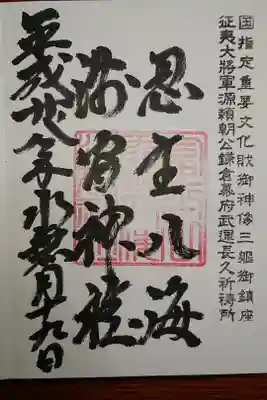 国指定重要文化財御神像三軀御鎮座
征夷大將軍源頼朝公鎌倉幕府武運長久祈祷所
忍野八海
浅間神社
平成廿八年水無月十九日